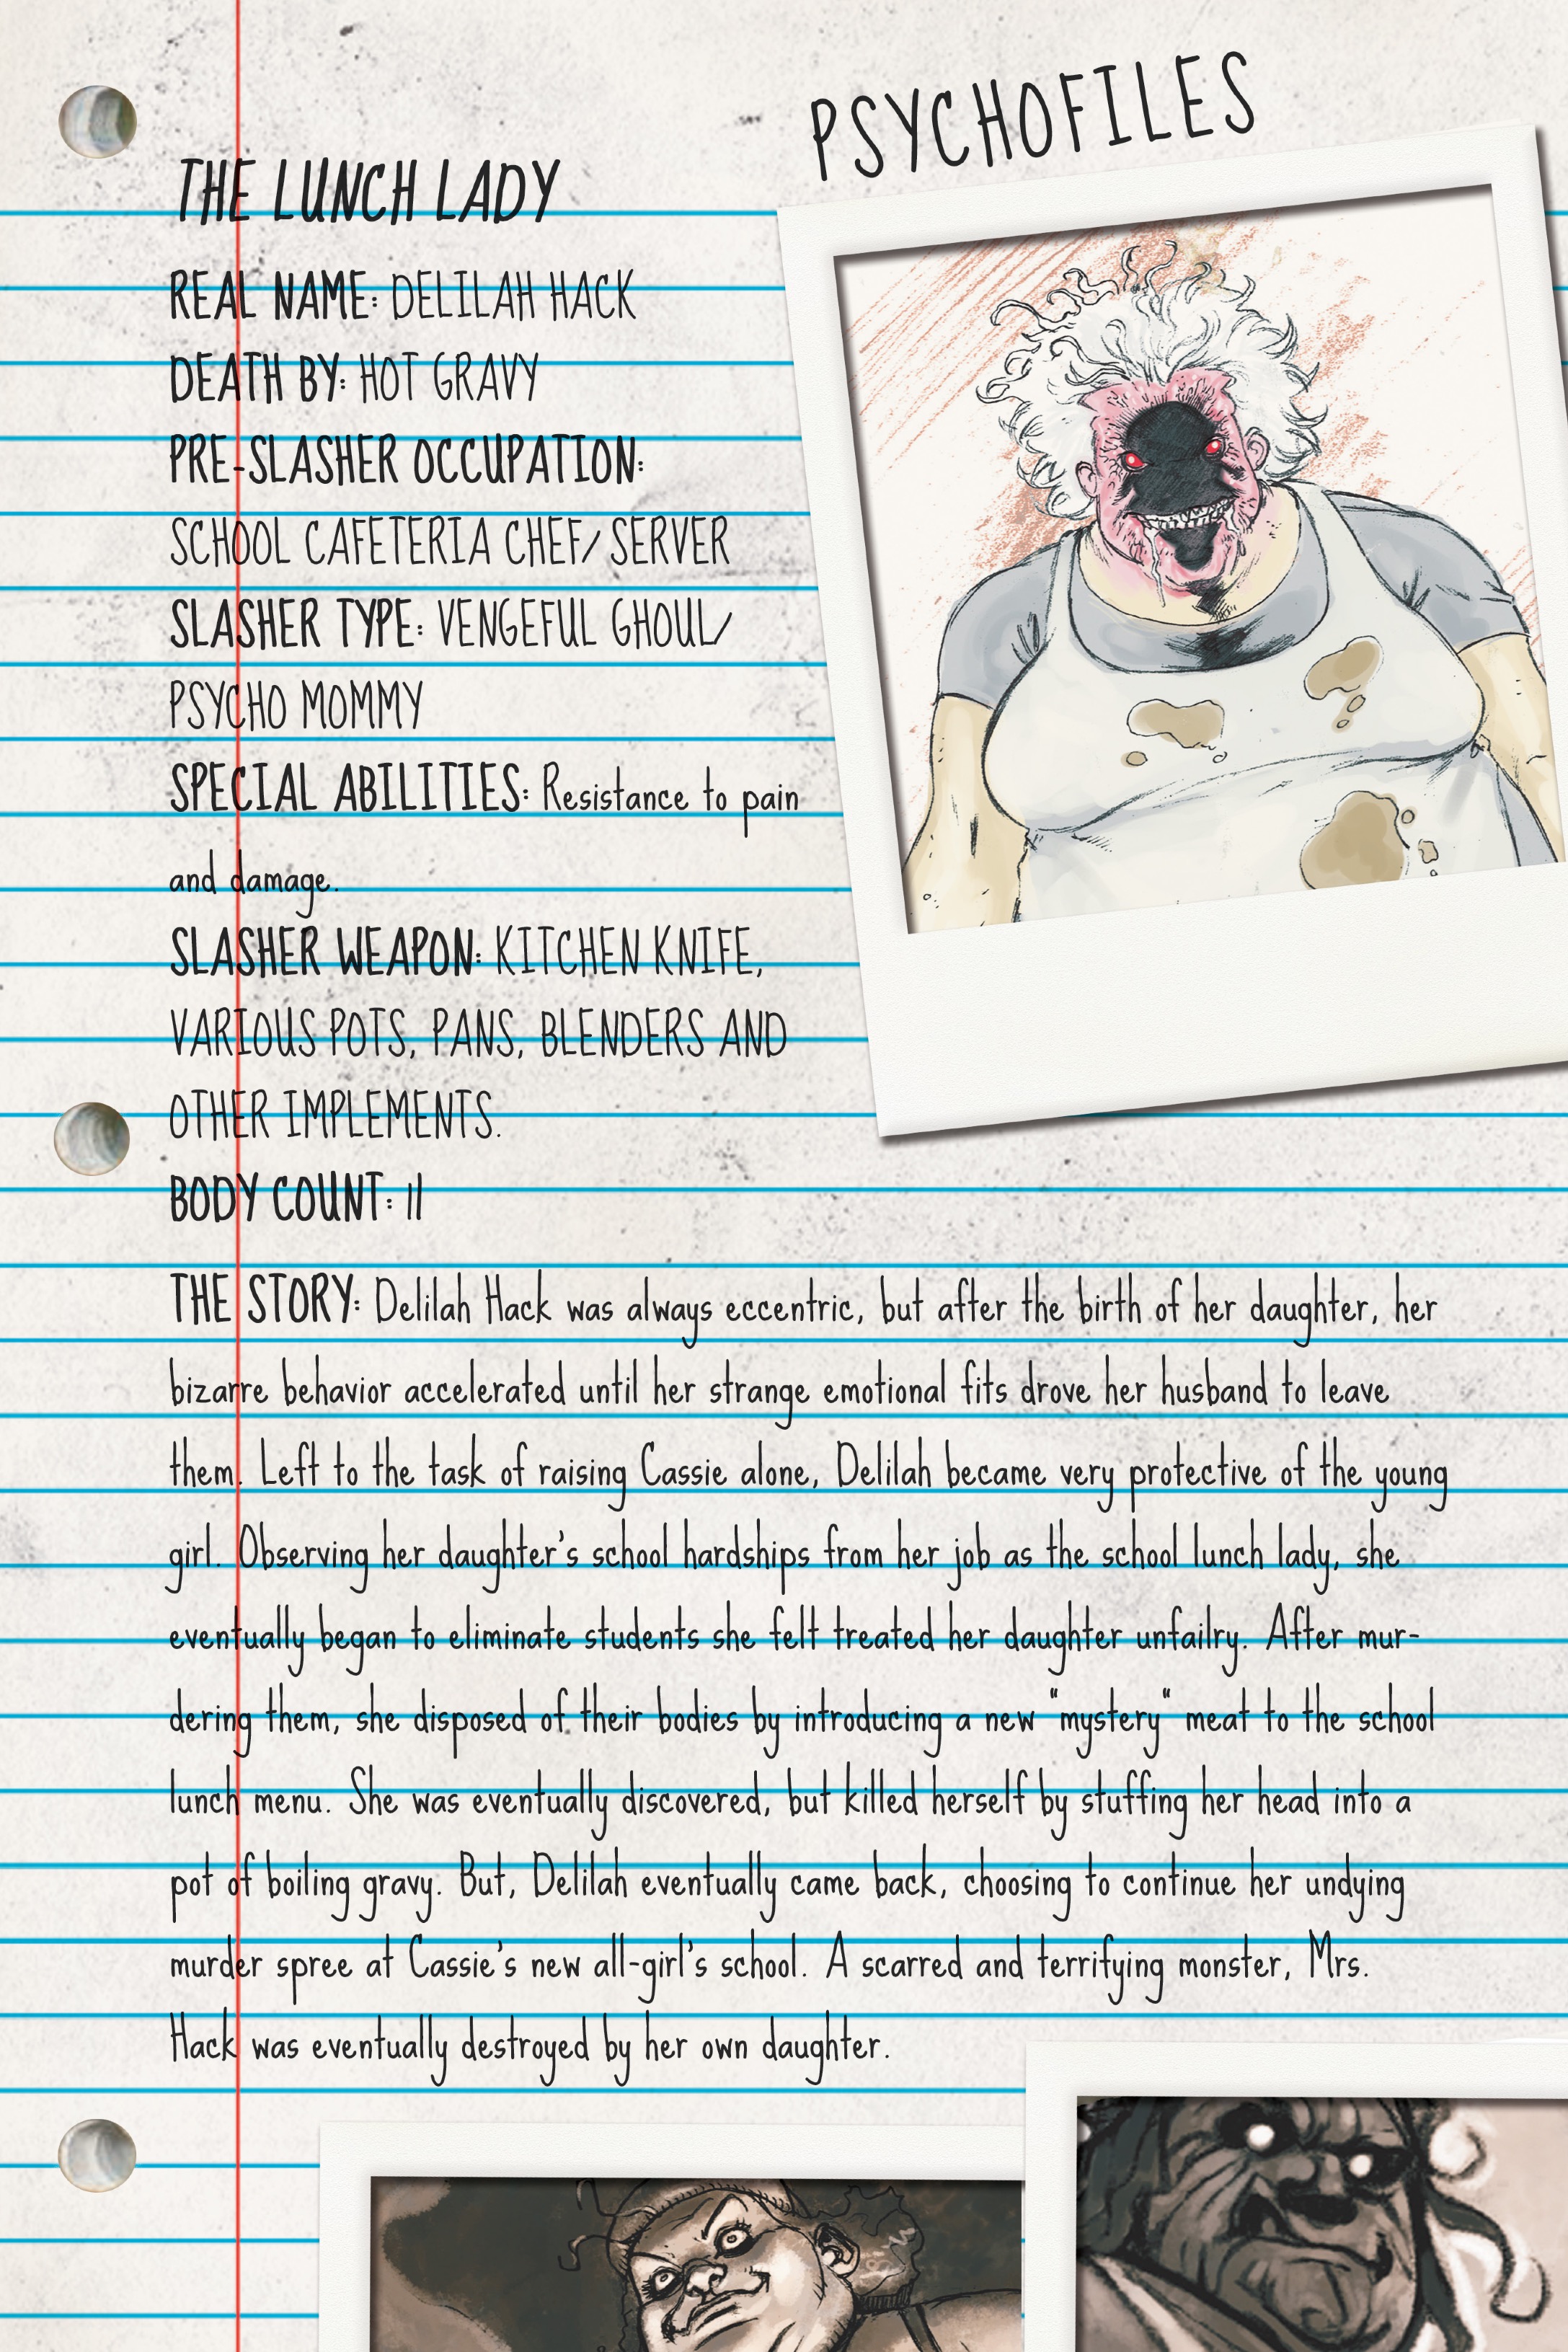 PSYCHOFILES
THE LUNCH LADY
REAL NAME: DELILAH HACK
DEATH BY: HOT GRAVY
PRE-SLASHER OCCUPATION:
SCHOOL CAFETERIA CHEF/ SERVER
SLASHER TYPE: VENGEFUL GHOUL/
PSYCHO MOMMY
SPECIAL ABILITIES: Resistance to pain
and damage.
SLASHER WEAPON: KITCHEN KNIFE,
VARIOUS POTS, PANS, BLENDERS AND
OTHER IMPLEMENTS.
BODY COUNT: 11
THE STORY: Delilah Hack was always eccentric, but after the birth of her daughter, her
bizarre behavior accelerated until her strange emotional fits drove her husband to leave
them. Left to the task of raising Cassie alone, Delilah became very protective of the young
girl. Observing her daughter's school hardships from her job as the school lunch lady, she
eventually began to eliminate students she felt treated her daughter unfailry. After mur-
dering them, she disposed of their bodies by introducing a new "mystery" meat to the school
lunch menu. She was eventually discovered, but killed herself by stuffing her head into a
pot of boiling gravy. But, Delilah eventually came back, choosing to continue her undying
murder spree at Cassie's new all-girl's school. A scarred and terrifying monster, Mrs.
Hack was eventually destroyed by her own daughter.